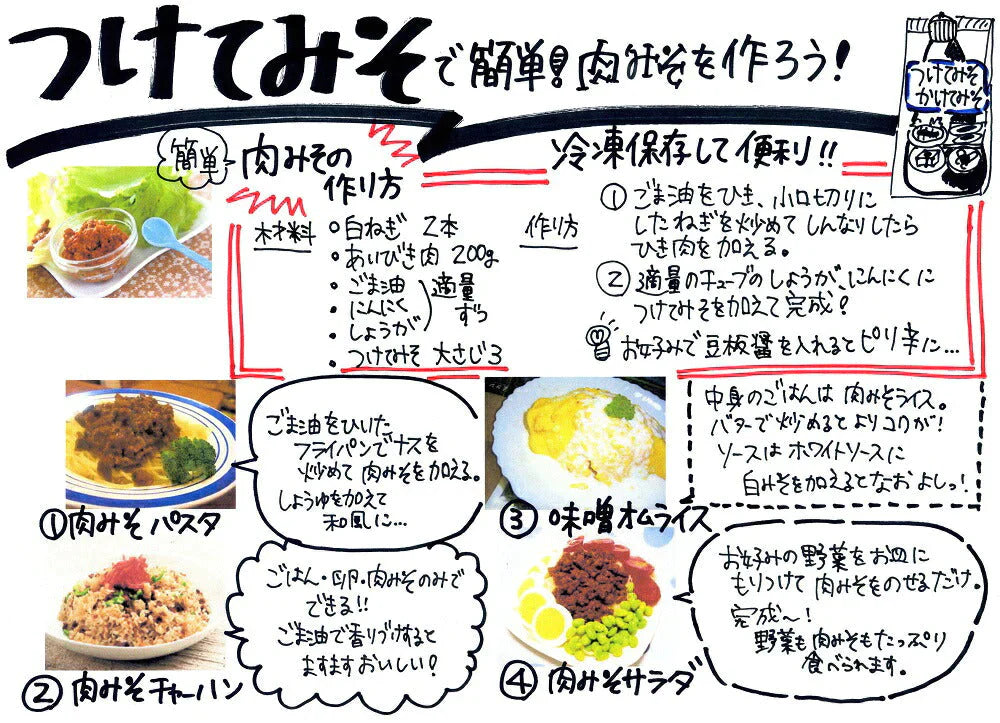 つけてみそで簡単!肉みそを作ろう!
つけてみそ
かけてみそ
簡単
肉みその
作り方
冷凍保存して便利!!
材料
○白ねぎ 2本
・あいびき肉 200g
・ごま油
・にんにく
・しょうが
適量
ずつ
・つけてみそ 大さじ3
作り方
① ごま油をひき、小口切りに
したねぎを炒めてしんなりしたら
ひき肉を加える。
② 適量のチューブのしょうが、にんにくに
つけてみそを加えて完成!
お好みで豆板醤を入れるとピリ辛に…
ごま油をひいた
フライパンでナスを
炒めて肉みそを加える。
しょうゆを加えて
和風に…
①肉みそパスタ
ごはん・卵・肉みそのみで
できる!!
ごま油で香りづけすると
ますますおいしい!
②肉みそチャーハン
中身のごはんは肉みそライス。
バターで炒めるとよりコクが!
ソースはホワイトソースに
白みそを加えるとなおよしっ!
③味噌オムライス
お好みの野菜をお皿に
もりつけて肉みそをのせるだけ。
完成~!
野菜も肉みそもたっぷり
食べられます。
④肉みそサラダ